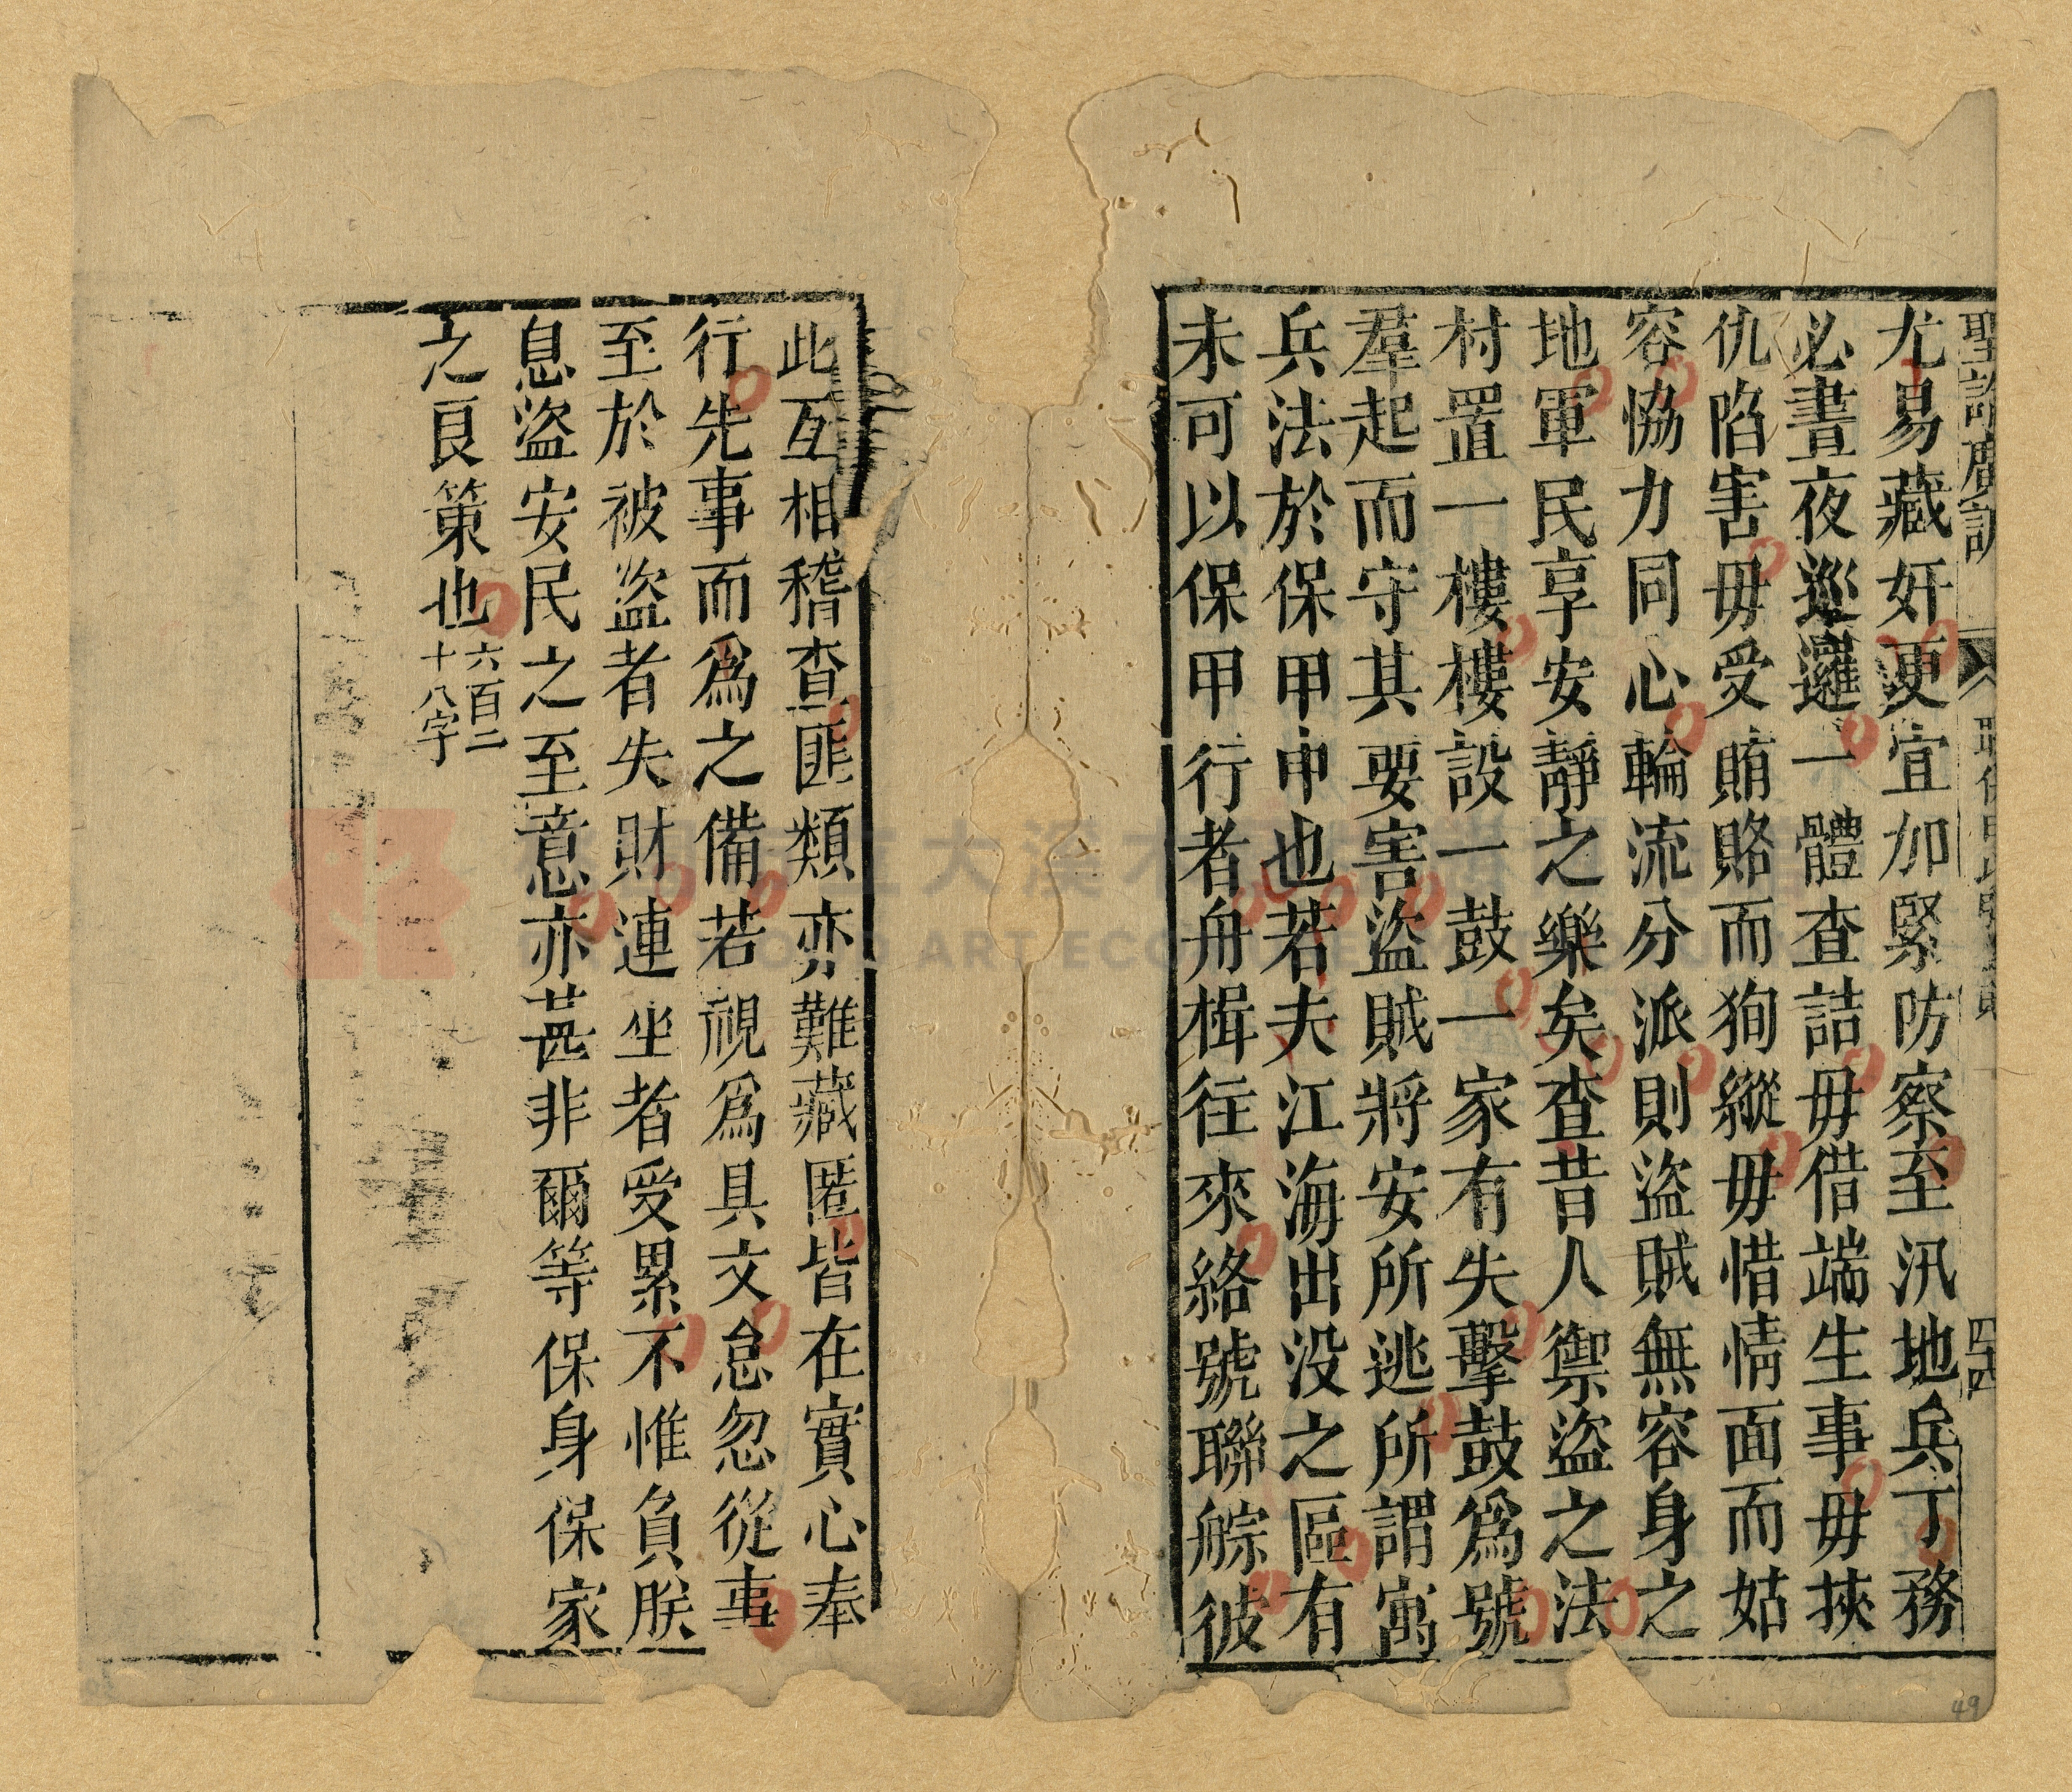 聖諭廣訓
四十四
尤易藏奸更宜加緊防察至汛地兵丁務
必晝夜巡邏一體查詰毋借端生事毋挾
仇陷害毋受賄賂而狥縱毋惜情面而姑
容恊力同心輪流分派則盜賊無容身之
地軍民享安靜之樂矣查昔人禦盜之法
村置一樓樓設一鼓一家有失擊鼓爲號
羣起而守其要害盜賊將安所逃所謂寓
兵法於保甲中也若夫江海出没之區有
未可以保甲行者舟楫往來絡號聯䑸彼
此互相稽查匪類亦難藏匿皆在實心奉
行先事而爲之備若視爲具文怠忽從事
至於被盜者失財連坐者受累不惟負朕
息盜安民之至意亦甚非爾等保身保家
之良策也
六百二
十八字
49